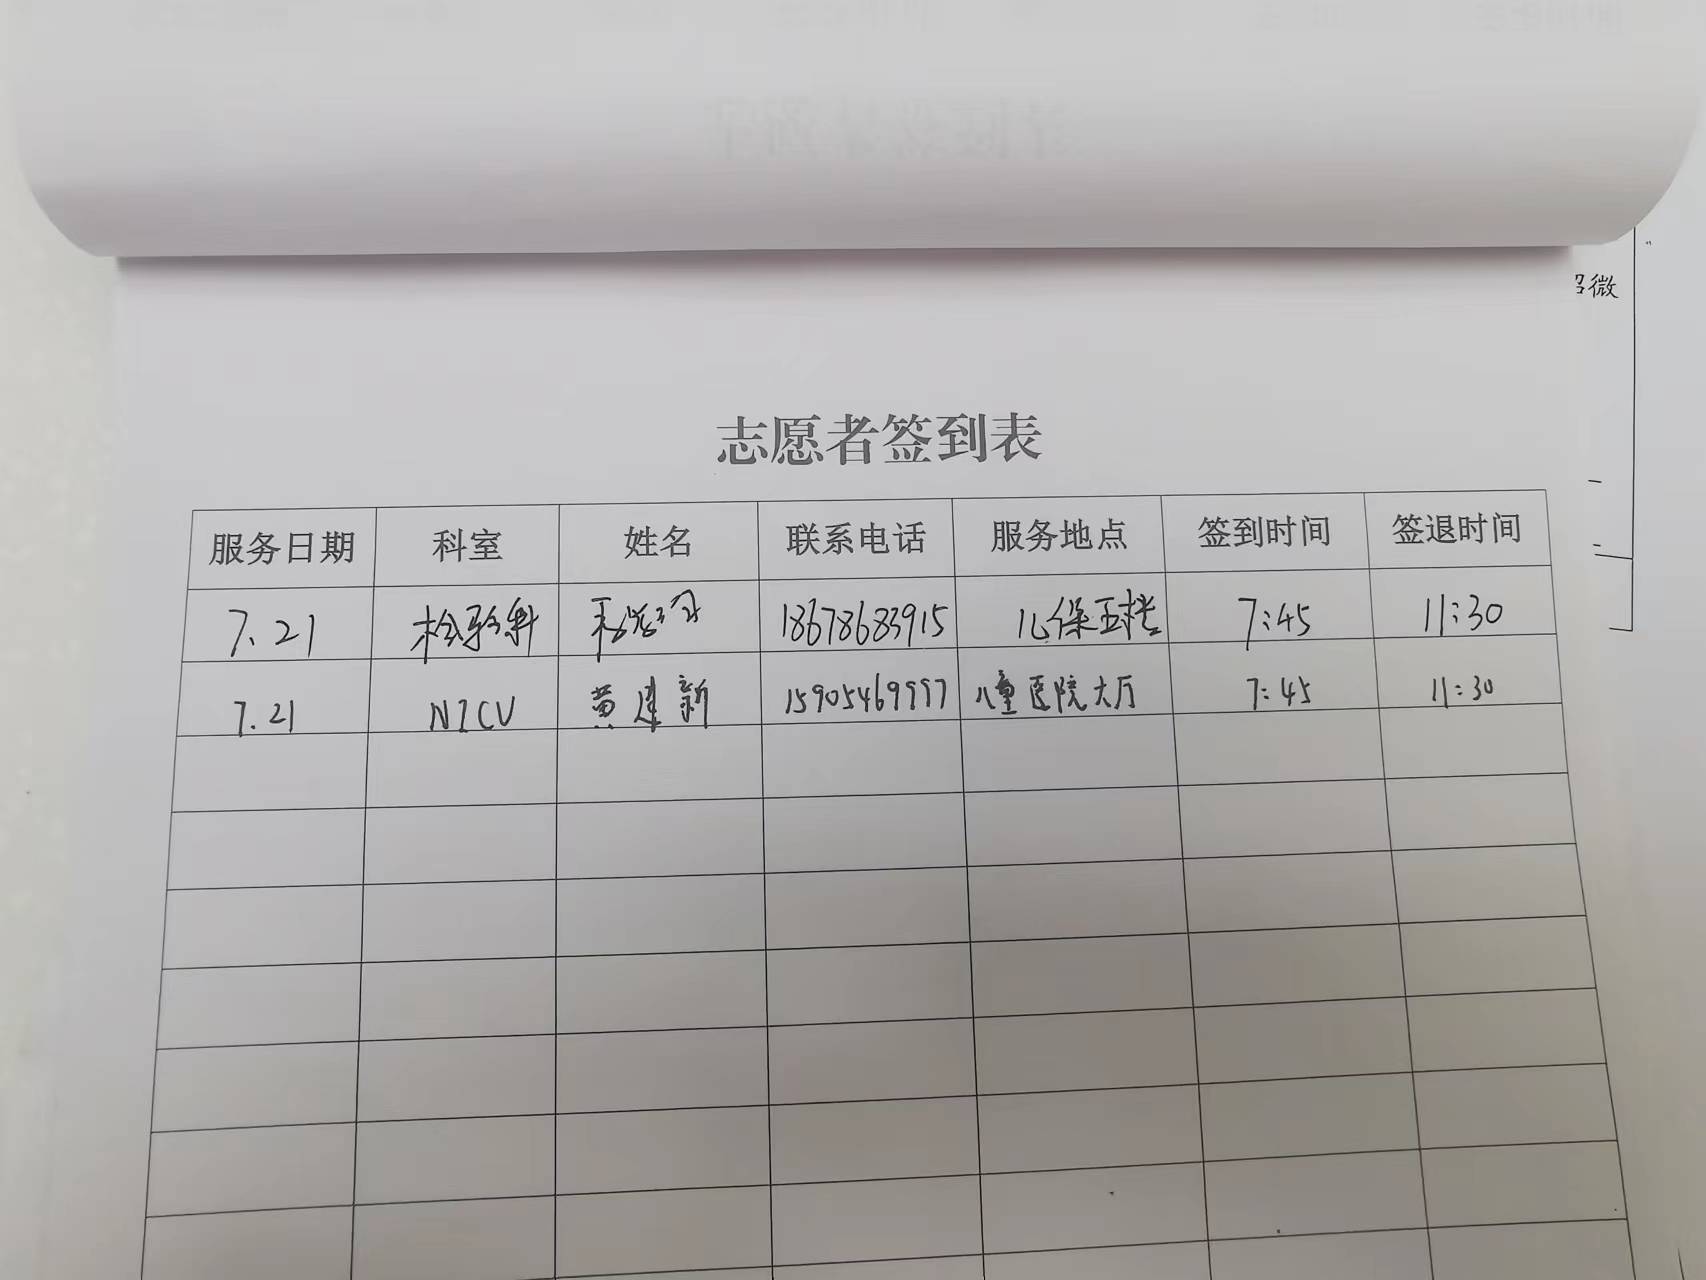 微
志愿者签到表
服务日期 科室 姓名 联系电话 服务地点 签到时间 签退时间
7.21 检验科 18678683915 儿保五楼 7:45 11:30
7.21 NICU 黄建新 15905469997 儿童医院大厅 7:45 11:30